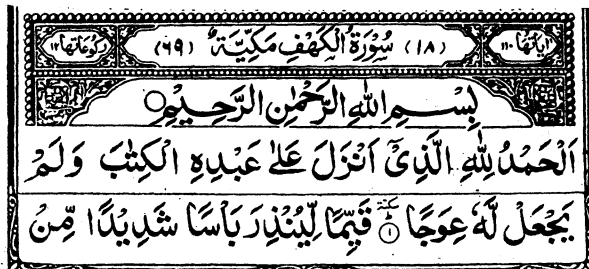 اٰیاتها ۱۱۰ (۱۸) سُوْرَةُ الْكَهْفِ مَكِّيَّةٌ (۶۹) رکوعاتها ۱۲
بِسْمِ اللّٰهِ الرَّحْمٰنِ الرَّحِيْمِ
اَلْحَمْدُ لِلّٰهِ الَّذِيْٓ اَنْزَلَ عَلٰى عَبْدِهِ الْكِتٰبَ وَلَمْ
يَجْعَلْ لَّهٗ عِوَجًا ۱ قَيِّمًا لِّيُنْذِرَ بَاْسًا شَدِيْدًا مِّنْ